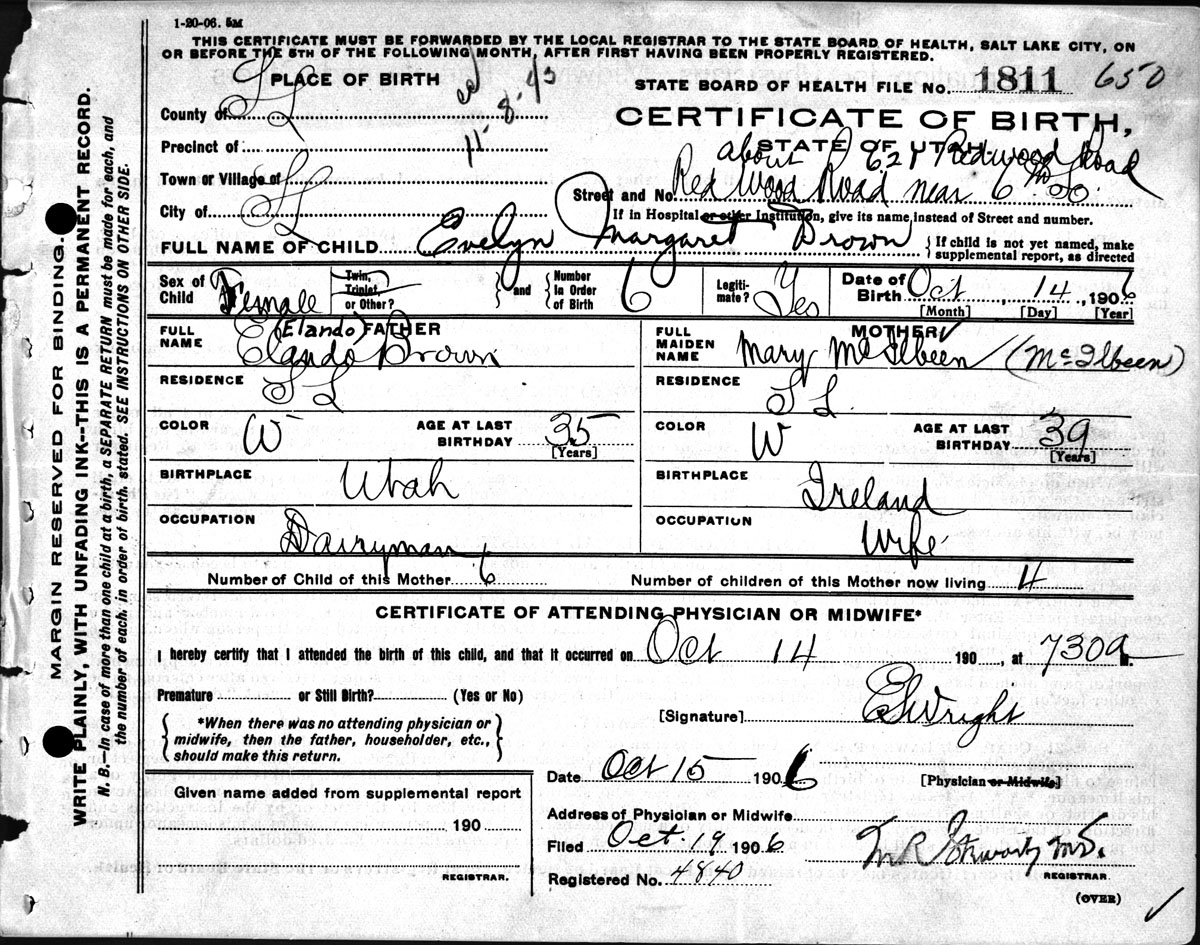 1-20-06. 5M
THIS CERTIFICATE MUST BE FORWARDED BY THE LOCAL REGISTRAR TO THE STATE BOARD OF HEALTH, SALT LAKE CITY, ON
OR BEFORE THE 5TH OF THE FOLLOWING MONTH, AFTER FIRST HAVING BEEN PROPERLY REGISTERED.
PLACE OF BIRTH
STATE BOARD OF HEALTH FILE No. 1811 650
County of S L
11-8-43
CERTIFICATE OF BIRTH,
STATE OF UTAH
Precinct of
about 621 Redwood Road
Town or Village of
Street and No. Red Wood Road near 6th So.
City of S L
If in Hospital or other Institution, give its name, instead of Street and number.
FULL NAME OF CHILD Evelyn Margaret Brown
If child is not yet named, make
supplemental report, as directed
Sex of Child Female
Twin, Triplet, or Other?
and
Number in Order of Birth 6
Legiti-mate? Yes
Date of Birth Oct 14, 1906
[Month] [Day] [Year]
FATHER
FULL NAME Elando Brown
(Elando)
MOTHER
FULL MAIDEN NAME Mary McIlbeen (McIlbeen)
RESIDENCE S L
RESIDENCE S L.
COLOR W
AGE AT LAST BIRTHDAY 35
[Years]
COLOR W
AGE AT LAST BIRTHDAY 39
[Years]
BIRTHPLACE Utah
BIRTHPLACE Ireland
OCCUPATION Dairyman
OCCUPATION Wife
Number of Child of this Mother 6
Number of children of this Mother now living 4
CERTIFICATE OF ATTENDING PHYSICIAN OR MIDWIFE*
I hereby certify that I attended the birth of this child, and that it occurred on Oct 14 190 , at 730a M.
Premature or Still Birth? (Yes or No)
*When there was no attending physician or
midwife, then the father, householder, etc.,
should make this return.
[Signature] E S Wright
Date Oct 15 1906
[Physician or Midwife]
Given name added from supplemental report
190
REGISTRAR.
Address of Physician or Midwife
Filed Oct. 19 1906
M R Stewart M.D.
REGISTRAR.
Registered No. 4840
(OVER)
MARGIN RESERVED FOR BINDING.
WRITE PLAINLY, WITH UNFADING INK--THIS IS A PERMANENT RECORD.
N. B.—In case of more than one child at a birth, a SEPARATE RETURN must be made for each, and
the number of each, in order of birth, stated. SEE INSTRUCTIONS ON OTHER SIDE.